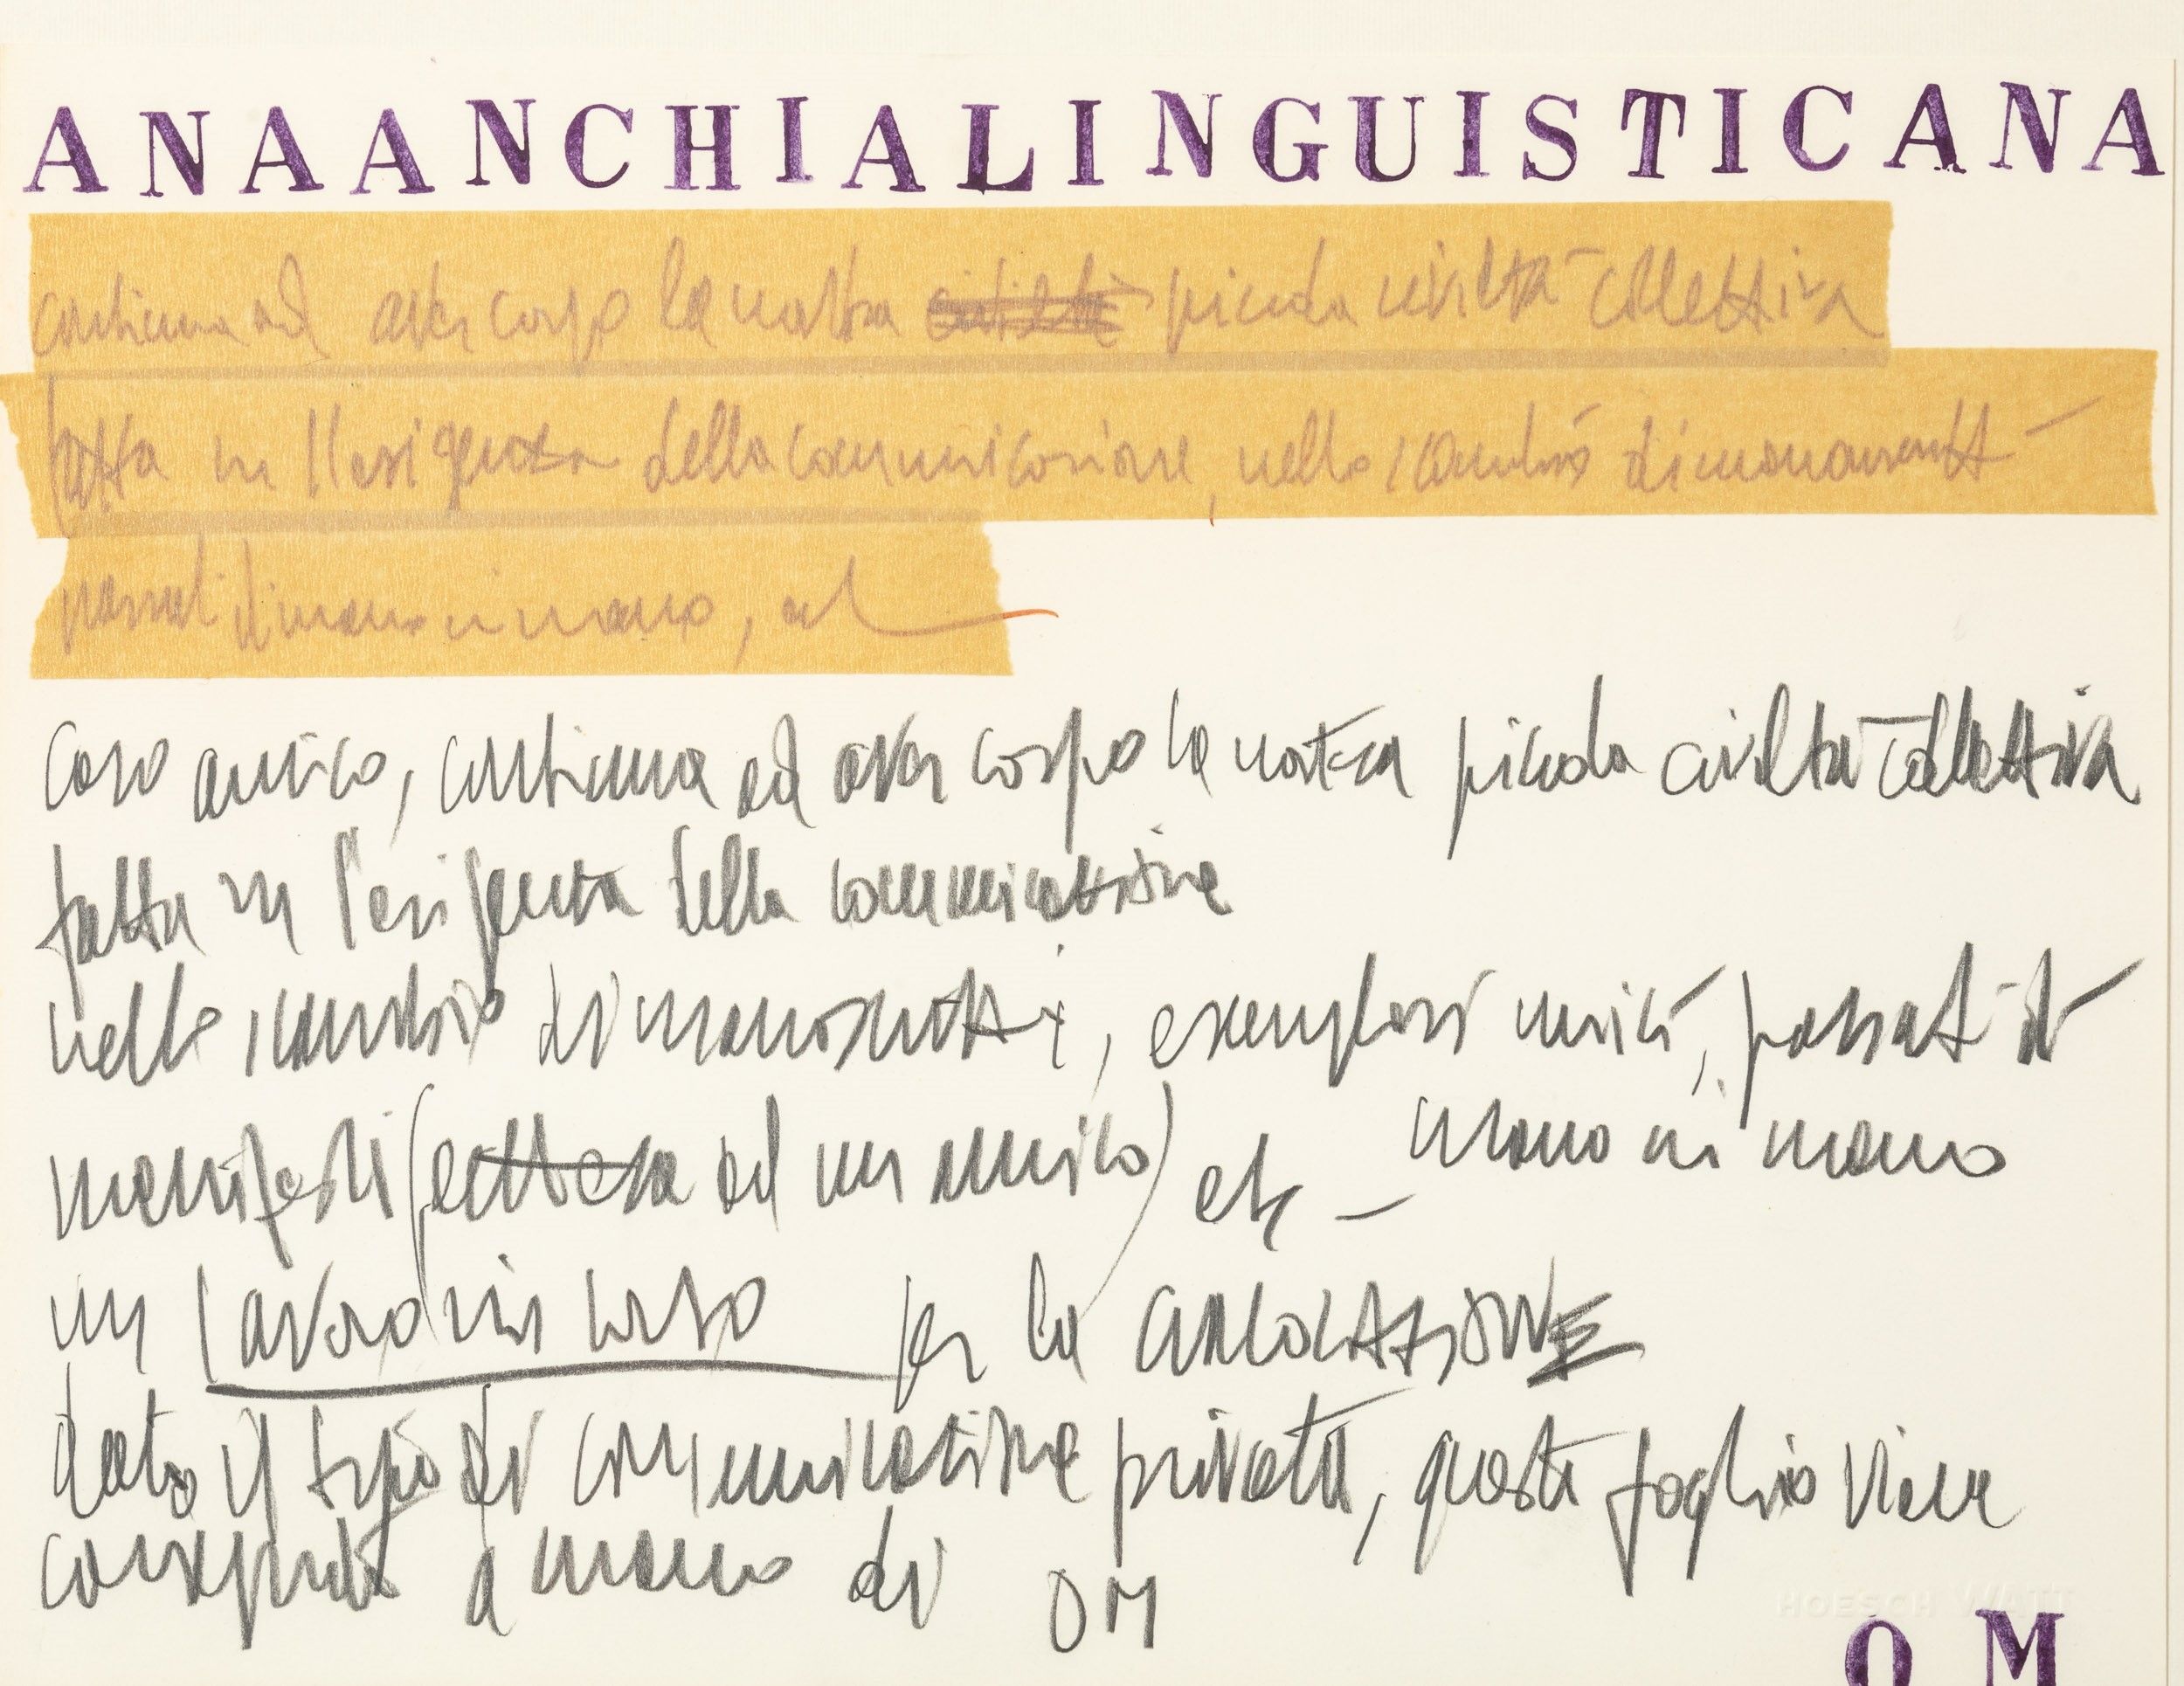 ANAANCHIALINGUISTICANA
continua ad aver corpo la nostra civiltà piccola civiltà collettiva
fatta in ll'esigenza della comunicazione, nello scambio di manoscritti
passati di mano in mano, ed
Caro amico, continua ad aver corpo la nostra piccola civiltà collettiva
fatta in l'esigenza della comunicazione
nello scambio di manoscritti, esemplari unici, passati di
mano in mano
manifesti ( ad un amico) etc –
un lavoro in corso per la CIRCOLAZIONE
dato il tipo di comunicazione privata, questo foglio viene
consegnato a mano di OM
HOESCH WATT
OM